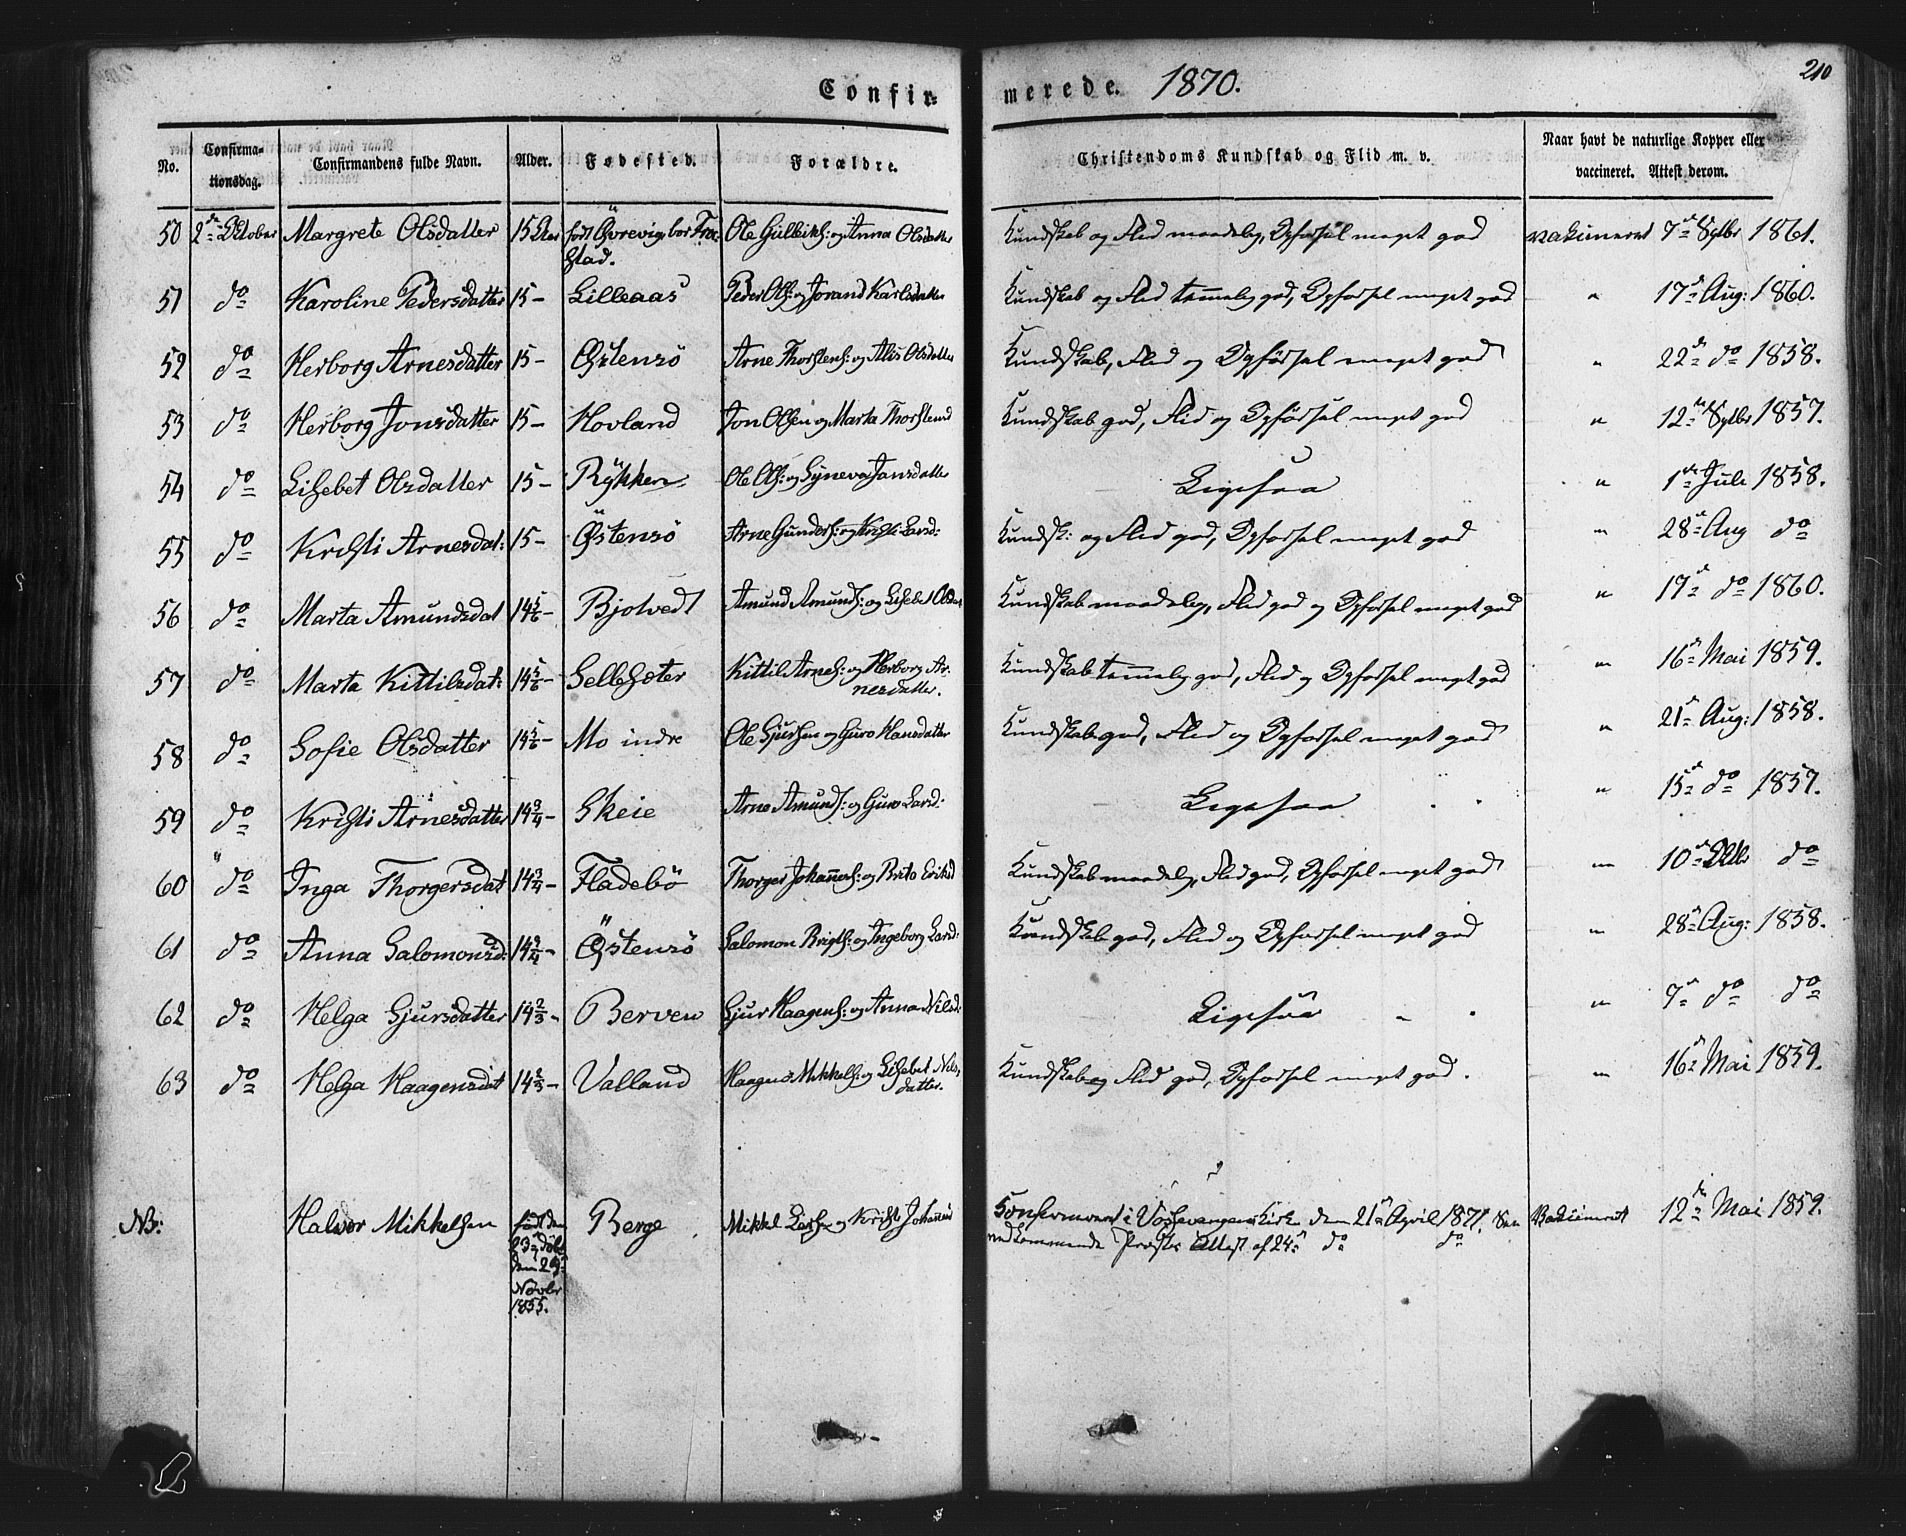 Confir- merede. 1870. 210
No. Confirma-tionsdag. Confirmandens fulde Navn. Alder. Fødested. Forældre. Christendoms Kundskab og Flid m. v. Naar havt de naturlige Kopper eller vaccineret. Attest derom.
50 2den Oktober Margrete Olsdatter 15 født Øvrevig, bor Ole Gulleiks: og Anna Olsdatter Kundskab og Flid maadelig, Opførsel meget god vakcineret 7de Sptbr 1861.
51 do Karoline Pedersdatter 15 – Lilleaas Peder Ols: og Jorand Karlsdatter Kundskab og Flid temmelig god, Opførsel meget god " 17de Aug: 1860.
52 do Herborg Arnesdatter 15 – Østensø Arne Thorstens: og Alis Olsdatter Kundskab, Flid og Opførsel meget god " 22de do 1858.
53 do Herborg Jonsdatter 15 – Hovland Jon Olsen og Marta Thorstensd Kundskab god, Flid og Opførsel meget god " 12te Sptbr 1857.
54 do Lisebet Olsdatter 15 – Rykken Ole Ols: og Syneva Jansdatter Ligesaa " 1ste Juli 1858.
55 do Kristi Arnesdat: 15 – Østensø Arne Gunders: og Kristi Larsd: Kundsk: og Flid god, Opførsel meget god " 28de Aug do
56 do Marta Amundsdat 14 5/6 – Bjotvedt Amund Amunds: og Lisebet Olsdat Kundskab maadelig, Flid god og Opførsel meget god " 17de do 1860.
57 do Marta Kittilsdat: 14 5/6 – Selleseter Kittil Arnes: og Herborg Arnesdatter. Kundskab temmelig god, Flid og Opførsel meget god " 16de Mai 1859.
58 do Sofie Olsdatter 14 5/6 – Mo indre Ole Sjursen og Guro Hansdatter Kundskab god, Flid og Opførsel meget god " 21de Aug: 1858.
59 do Kristi Arnesdatter 14 3/4 – Skeie Arne Amunds: og Guro Larsd: Ligesaa " 15de do 1857.
60 do Inga Thorgersdat 14 3/4 – Fladebø Thorger Johannes: og Brita Eriksd Kundskab maadelig, Flid god, Opførsel meget god " 10de do
61 do Anna Salomonsd: 14 3/4 – Østensø Salomon og Ingeborg Larsd: Kundskab god, Flid og Opførsel meget god " 28de Aug: 1858.
62 do Helga Sjursdatter 14 2/3 – Berven Sjur Haagens: og Anna Nilsd: Ligesaa " 7de do do
63 do Helga Haagensdat 14 2/3 – Valland Haagen Mikkels: og Lisebet Nilsdatter. Kundskab og Flid god, Opførsel meget god. " 16de Mai 1859.
NB: Halvor Mikkelsen født den 23de døbt den 29de Novbr 1855. Berge Mikkel og Kristi Johannesd Confirmeret i Vossevangens Kirke den 21de April 1871. Vakcineret 12te Mai 1859.
vedkommende Præsts Attest af 24de do do